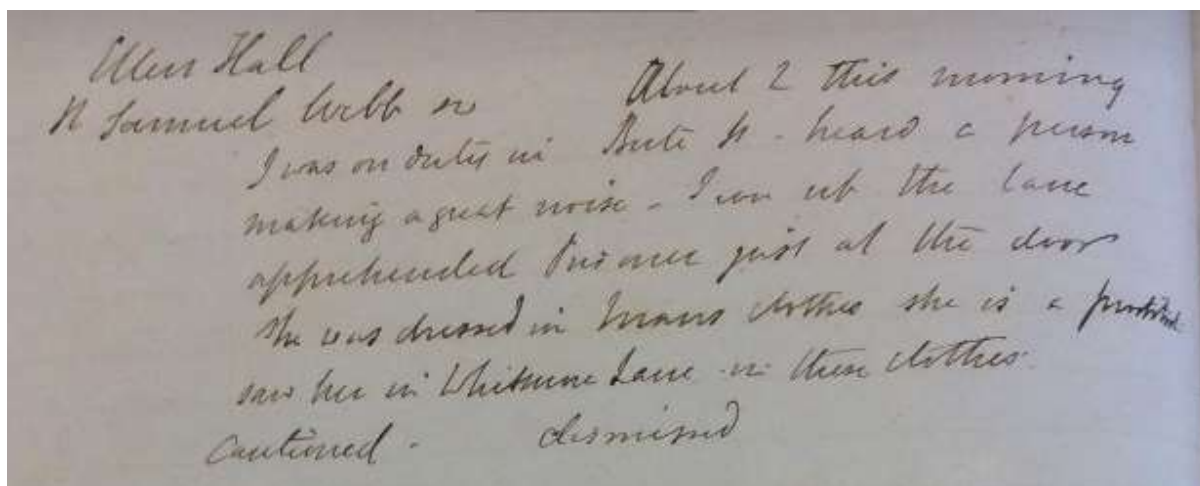 Ellen Hall
Samuel Webb sw About 2 this morning
I was on duty in Bute St - heard a person
making a great noise - I ran up the lane
apprehended Prisoner just at the door
She was dressed in Mans clothes she is a prostitute
saw her in Whitmore Lane in these clothes.
Cautioned - dismissed